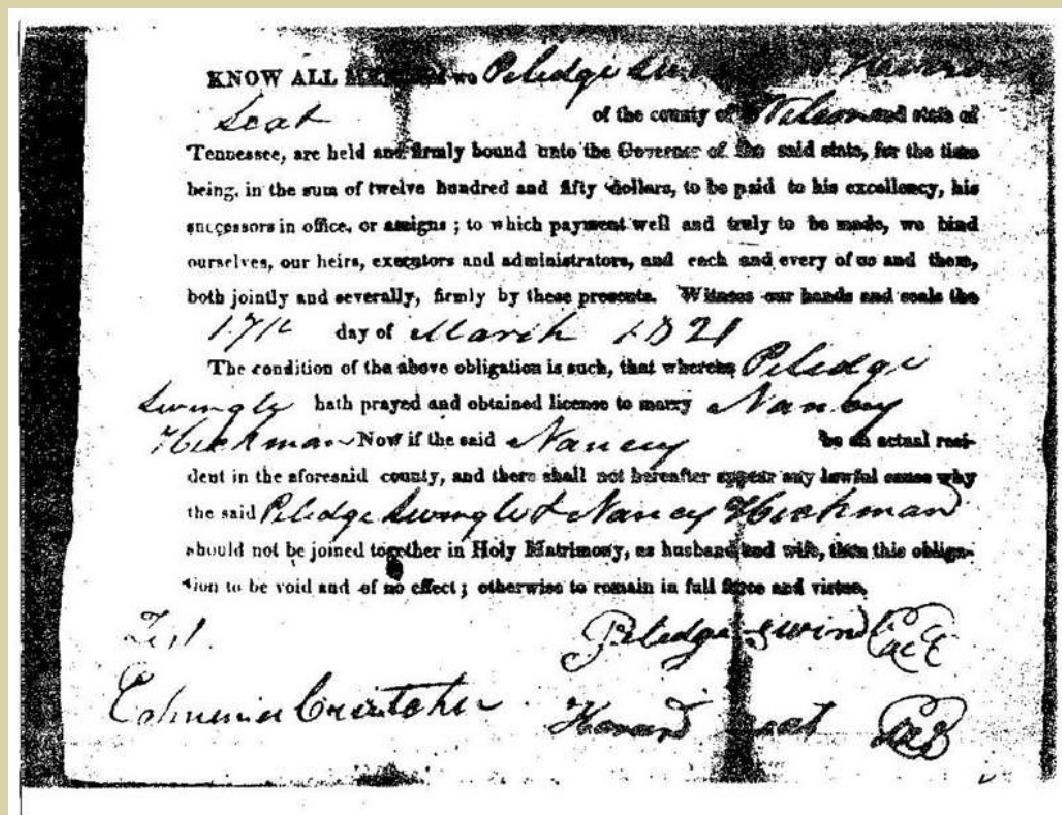 KNOW ALL we Peledge
Seat of the county of Wilson and state of
Tennessee, are held and firmly bound unto the Governor of the said state, for the time
being, in the sum of twelve hundred and fifty dollars, to be paid to his excellency, his
successors in office, or assigns; to which payment well and truly to be made, we bind
ourselves, our heirs, executors and administrators, and each and every of us and them,
both jointly and severally, firmly by these presents. Witness our hands and seals the
17th day of March 1821
The condition of the above obligation is such, that whereas Peledge
Swingly hath prayed and obtained license to marry Nancy
Hickman Now if the said Nancy be an actual resi-
dent in the aforesaid county, and there shall not hereafter appear any lawful cause why
the said Peledge & Nancy Hickman
should not be joined together in Holy Matrimony, as husband and wife, then this obliga-
tion to be void and of no effect; otherwise to remain in full force and virtue.
Test. Peledge
Crutcher Howard